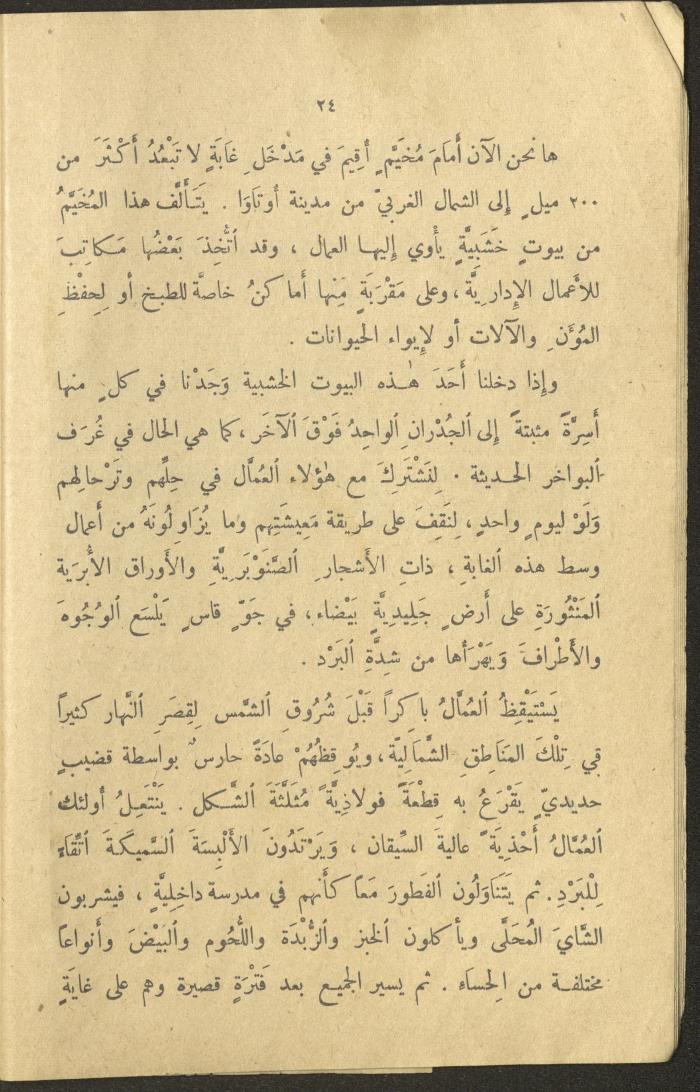 ٢٤
ها نحن الآن أَمَامَ مُخَيَّمٍ أُقِيمَ في مَدْخَلِ غَابَةٍ لا تَبْعُدُ أَكْثَرَ من
٢٠٠ ميلٍ إِلى الشمال الغربيّ من مدينة أوتَاوَا . يَتَأَلَّف هذا المُخَيَّمُ
من بيوتٍ خَشَبِيَّةٍ يأْوي إِليهـا العمال ، وقد ٱتُّخِذَ بَعْضُها مَـكاتِبَ
للأَعمال الإِدارِيَّة ، وعلى مَقْرَبَةٍ مِنها أَماكنُ خاصَّة للطبخ أو لِحِفْظِ
المُؤَنِ والآلات أو لإِيواء الحيوانات .
وإِذا دخلنا أَحَدَ هٰـذه البيوت الخشبية وَجَدْنا في كلٍ منها
أَسِرَّةً مثبتةً إِلى ٱلجُدْرانِ ٱلواحِدُ فَوْقَ ٱلآخَر ، كما هي الحال في غُرَف
ٱلبواخر الحـديثة . لِنَشْتَرِكَ مع هٰؤلاء ٱلعُمَّال في حِلِّهم وتَرْحالِهم
وَلَوْ ليومٍ واحدٍ ، لِنَقِفَ على طريقة مَعِيشَتِهم وما يُزَاوِلُونَهُ من أَعمال
وسط هذه ٱلغابةِ ، ذاتِ الأَشجارِ ٱلصَّنَوْبَرِيَّةِ والأَوراق الأَبَرِية
ٱلمَنْثُورَةِ على أَرضٍ جَلِيدِيَّةٍ بَيْضاء ، في جَوٍّ قاسٍ يَلْسَع ٱلوُجُوهَ
والأَطْرافَ وَيَهْرَأُها من شدَّةِ ٱلبَرْد .
يَسْتَيْقِظُ ٱلعُمَّالُ باكِراً قَبْلَ شُرُوقِ ٱلشَّمس لِقِصَرِ ٱلنَّهار كثيراً
في تِلْكَ المَنَاطِقِ الشَّمَالِيَّة ، ويُوقِظُهُمْ عادَةً حارسٌ بواسطة قضيبٍ
حديديّ يَقْرَعُ به قِطْعَةً فولاذِيَّةً مُثَلَّثَةَ الشَّـكل . يَنْتَعِـلُ أولئك
ٱلعُمَّالُ أَحْذِيَةً عالية السِّيقان ، وَيَرْتَدُونَ الأَلْبِسَةَ السَّمِيكَةَ ٱتِّقَاءً
لِلْبَرْدِ . ثم يَتَنَاوَلُون الفَطورَ مَعًا كأَنهم في مدرسة داخِلِيَّةٍ ، فيشربون
الشَّايَ المُحَلَّى ويأكلون ٱلخبز وٱلزُّبْدَة واللُّحُوم وٱلبَيْضَ وأَنواعاً
مختلفـة من الِحسَاءِ . ثم يسير الجميـع بعد فَتْرَةٍ قصيرة وهم على غايَةٍ